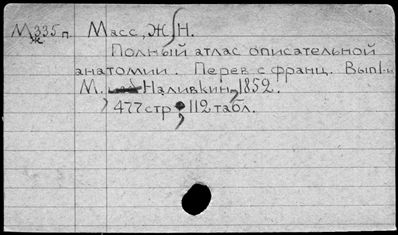 М335п. Масс, Ж.Н.
ж
Полный атлас описательной
анатомии. Перев. с франц. Вып 1-й
М. Наливкин, 1852.
477 стр; 112 табл.